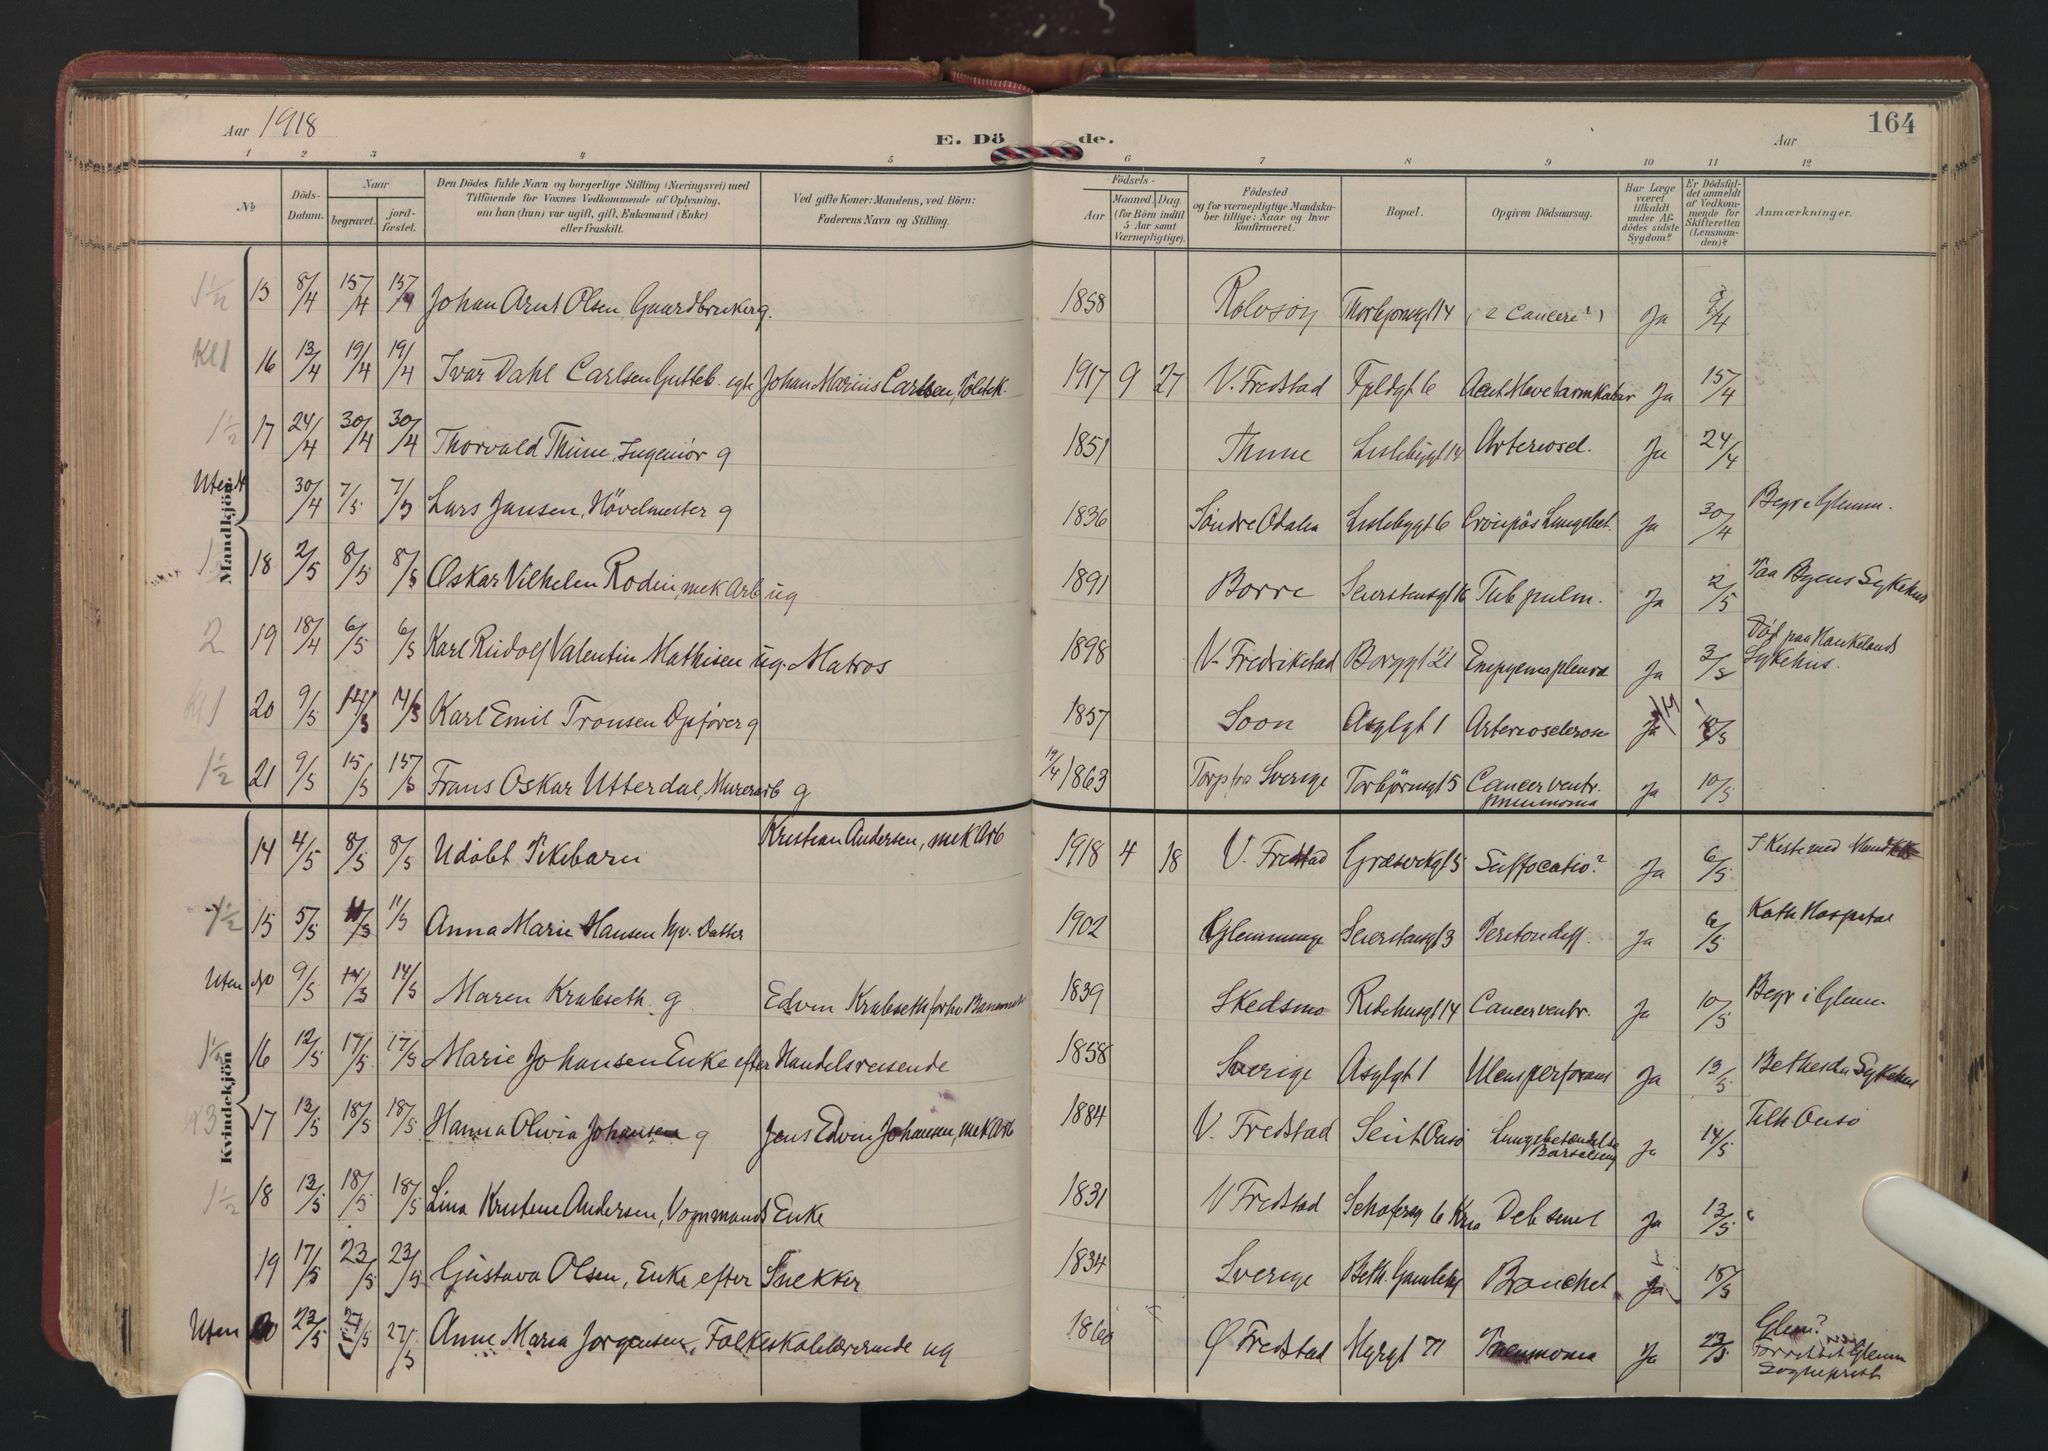 Aar 1918 E. Dö de. Aar 164
1 2 3 4 5 6 7 8 9 10 11 12
№
Döds-Datum.
Naar
begravet. jordfæstet.
Den Dödes fulde Navn og borgerlige Stilling (Næringsvei) med Tilföiende for Voxnes Vedkommende af Oplysning, om han (hun) var ugift, gift, Enkemand (Enke) eller fraskilt.
Ved gifte Koner: Mandens, ved Börn: Faderens Navn og Stilling.
Födsels-
Aar Maaned. Dag.
(for Börn indtil 5 Aar samt Værnepligtige).
Födested og for værnepligtige Mandskaber tillige: Naar og hvor konfirmeret.
Bopæl.
Opgiven Dödsaarsag.
Har Læge været tilkaldt under Afdödes sidste Sygdom?
Er Dödsfaldet anmeldt af Vedkommende for Skifteretten (Lensmanden)?
Anmærkninger.
Mandkjön
1½ 15 8/4 15/4 15/4 Johan Arnt Olsen, Gaardbruker g. 1858 Rolvsöy Thorbjonsgt 14 (Cancere?) Ja 9/4
Kl 1 16 13/4 19/4 19/4 Ivar Dahl Carlsen Gutteb. egte Johan Marius Carlsen, 1917 9 27 V. Fredstad 6 Ja 15/4
1½ 17 24/4 30/4 30/4 Thorvald Thune, Ingeniör g 1851 Thune Lislebygt 14 Arterioscl. Ja 24/4
Utent 30/4 7/5 7/5 Lars Jansen, Hövelmester g 1836 Söndre Odalen Lislebygt 6 Croupös Lungebet. Ja 30/4 Begr i Glemm.
1 18 2/5 8/5 8/5 Oskar Vilhelm Rodin, mek Arb ug 1891 Borre Seierstensgt 16 Tub pulm. Ja 2/5 Paa Byens Sykehus
2 19 18/4 6/5 6/5 Karl Rudolf Valentin Mathisen ug. Matros 1898 V. Fredrikstad Borggt 21 Empyema pleura Ja 3/5 Död paa Haukelands Sykehus.
Kl 1 20 9/5 14/5 14/5 Karl Emil Tronsen Opsöver g 1857 Soon Asylgt 1 Arteriosclerose Ja 10/5
1½ 21 9/5 15/5 15/5 Frans Oskar Utterdal, Murerarb g 19/4 1863 Torp fra Sverige Torbjörnsgt 5 Cancer ventr. pneumonia Ja 10/5
Kvindekjön
14 4/5 8/5 8/5 Udöbt Pikebarn Kristian Andersen, mek Arb 1918 4 18 V. Fredstad Græsvikgt 5 Suffocatio? Ja 6/5 I Kiste med
1½ 15 5/5 11/5 11/5 Anna Marie Hansen Hjv. Datter 1902 Glemminge Seierstensgt 3 Periton diff. Ja 6/5 Kath Hospital
Uten 9/5 14/5 14/5 Maren Krabseth. g Edvin Krabseth forhv 1839 Skedsmo Ridehusgt 14 Cancer ventr. Ja 10/5 Begr i Glem
1½ 16 12/5 17/5 17/5 Marie Johansen Enke efter Handelsreisende 1858 Sverige Asylgt 1 Ulcus perforans Ja 13/5 Bethesda Sykehus
17 13/5 18/5 18/5 Hanna Olivia Johansen g Jens Edvin Johansen, mek Arb 1884 V. Fredstad Lungebetændelse Barselseng Ja 14/5 Tilh Onsö
1½ 18 13/5 18/5 18/5 Lina Kristine Andersen, Vognmands Enke 1831 V Fredstad 6 Kra Deb senil Ja 13/5
19 17/5 23/5 23/5 Gustava Olsen, Enke efter Snekker 1834 Sverige Beth. Gamlehj Bronchit Ja 18/5
Uten 23/5 27/5 27/5 Anne Maria Jorgensen, Folkeskolelærerinde ug 1860 Ø Fredstad Myrgt 71 Pneumonia Ja 23/5 Glem? Forrettet Glem Sogneprest